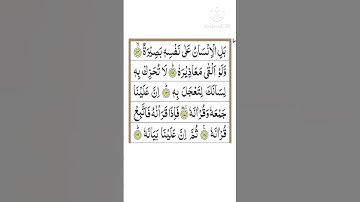 بَلِ الْاِنْسَانُ عَلٰى نَفْسِهٖ بَصِيْرَةٌ ۙ
وَّلَوْ اَلْقٰى مَعَاذِيْرَهٗ ؕ لَا تُحَرِّكْ بِهٖ
لِسَانَكَ لِتَعْجَلَ بِهٖ ؕ اِنَّ عَلَيْنَا
جَمْعَهٗ وَقُرْاٰنَهٗ ۚ فَاِذَا قَرَاْنٰهُ فَاتَّبِعْ
قُرْاٰنَهٗ ۚ ثُمَّ اِنَّ عَلَيْنَا بَيَانَهٗ ؕ